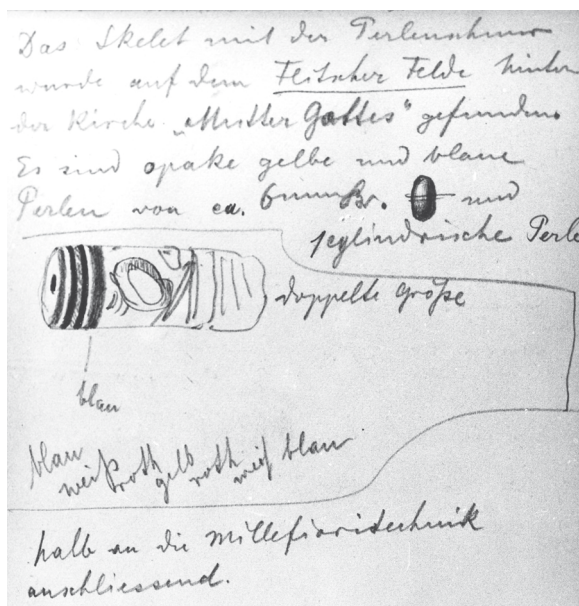 Das Skelet mit der Perlenschnur
wurde auf dem Flitscher Felde hinter
der Kirche „Mutter Gottes“ gefunden.
Es sind opake gelbe und blaue
Perlen von ca. 6mm Br. und
1 cylindrische Perle
doppelte Größe
blau
blau weiß roth gelb roth weiß blau
halb an die Millefioritechnik
anschliessend.